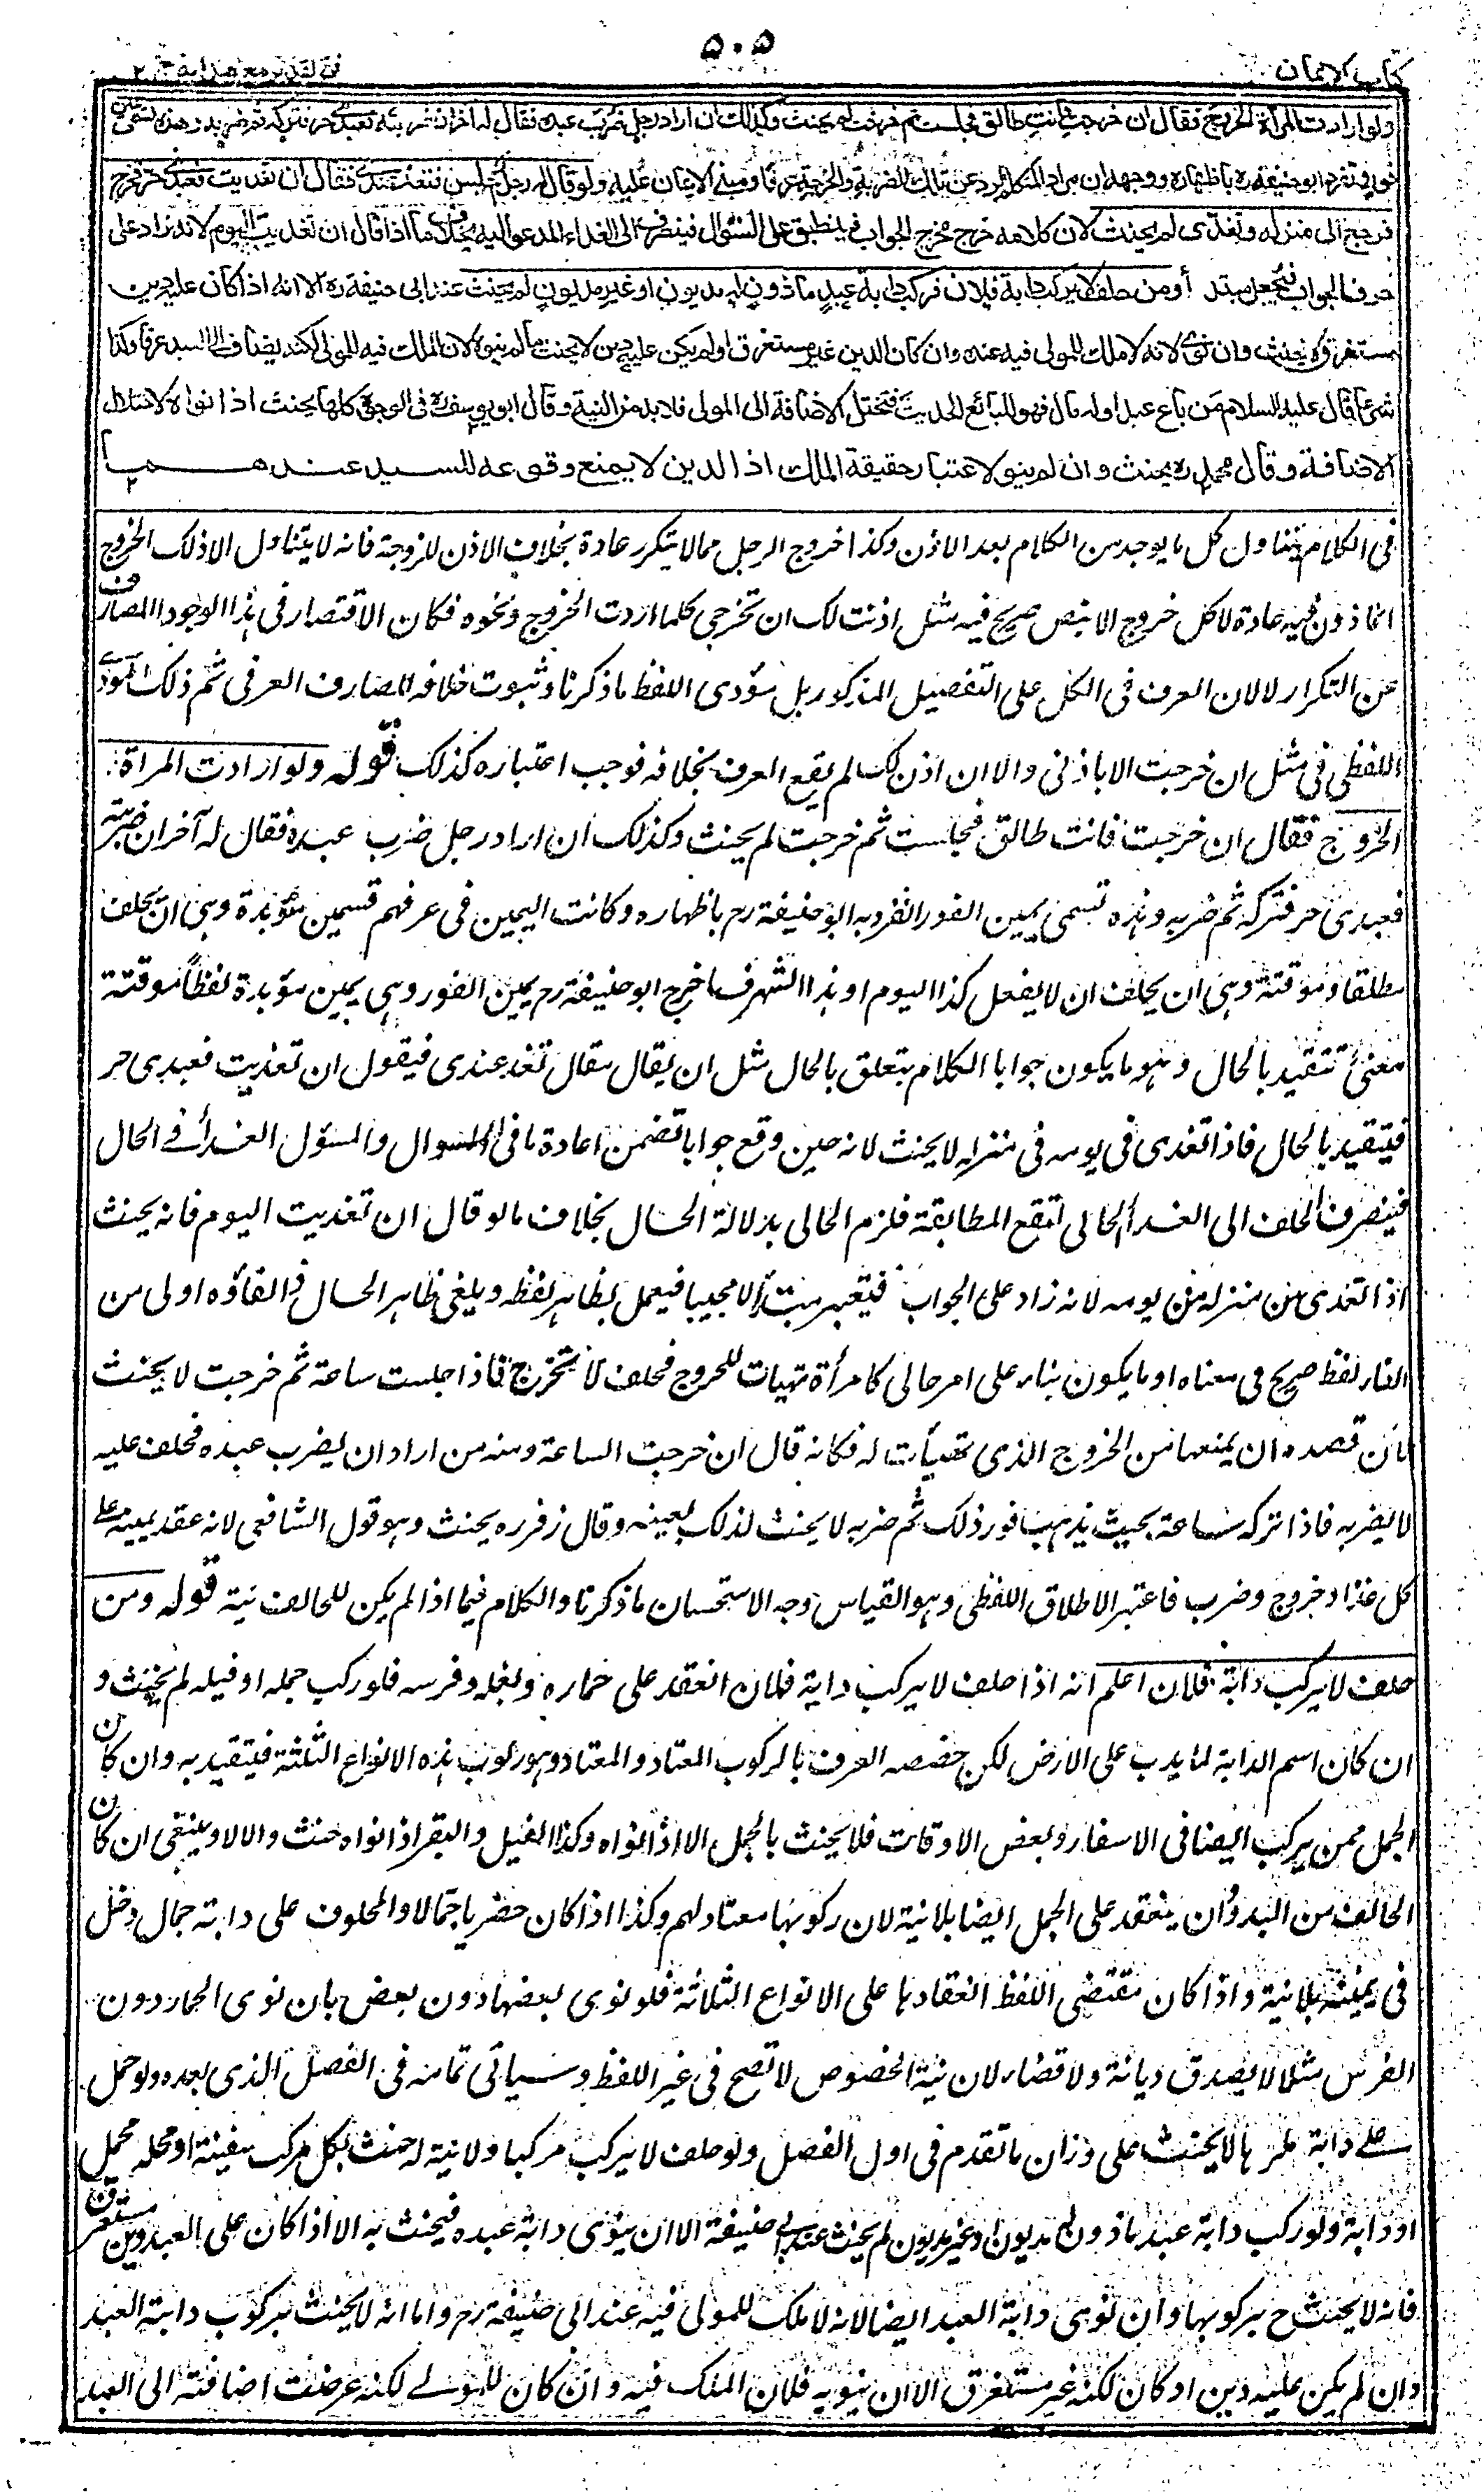 ۵۰۵
كتاب الايمان
فتح القدير مع هدايه ج ۲
ولو ارادت المرأة الخروج فقال ان خرجت فانت طالق فجلست ثم خرجت لم يحنث وكذلك ان اراد رجل ضرب عبده فقال له آخر ان ضربته فعبدى حر فتركه ثم ضربه وهذه تسمى يمين
فور وتفرد ابو حنيفة ره باظهاره ووجهه ان مراد المتكلم الرد عن تلك الضربة والخرجة عرفا ومبنى الايمان عليه ولو قال له رجل اجلس فتغد عندى فقال ان تغديت فعبدى حر فخرج
فرجع الى منزله وتغدى لم يحنث لان كلامه خرج مخرج الجواب فينطبق على السؤال فينصرف الى الغداء المدعو اليه بخلاف ما اذا قال ان تغديت اليوم لانه زاد على
حرف الجواب فيجعل مبتدأ ومن حلف لا يركب دابة فلان فركب دابة عبد ماذون له مديون او غير مديون لم يحنث عند ابى حنيفة ره الا انه اذا كان عليه دين
مستغرق لا يحنث وان نوى لانه لا ملك للمولى فيه عنده وان كان الدين غير مستغرق او لم يكن عليه دين لا يحنث ما لم ينوه لان الملك فيه للمولى لكنه يضاف الى العبد عرفا وكذا
شرعا قال عليه السلام من باع عبدا وله مال فهو للبائع الحديث فتختل الاضافة الى المولى فلا بد من النية وقال ابو يوسف ره فى الوجوه كلها يحنث اذا نواه لاختلال
الاضافة وقال محمد ره يحنث وان لم ينو لاعتبار حقيقة الملك اذ الدين لا يمنع وقوعه للسيد عندهما
فى الكلام يتناول كل ما يوجد من الكلام بعد الاذن وكذا خروج الرجل مما لا يتكرر عادة بخلاف الاذن للزوجة فانه لا يتناول الا ذلك الخروج
الماذون فيه عادة لا كل خروج الا بنص صريح فيه مثل اذنت لك ان تخرجى كلما اردت الخروج ونحوه فكان الاقتصار فى هذا الوجود الصارف
عن التكرار لا لان العرف فى الكل على التفصيل المذكور بل مؤدى اللفظ ما ذكرنا وثبوت خلافه للصارف العرفى ثم ذلك المؤدى
اللفظى فى مثل ان خرجت الا باذنى والا ان اذن لك لم يقع العرف بخلافه فوجب اعتباره كذلك قوله ولو ارادت المراة
الخروج فقال ان خرجت فانت طالق فجلست ثم خرجت لم يحنث وكذلك ان اراد رجل ضرب عبده فقال له آخر ان ضربته
فعبدى حر فتركه ثم ضربه وهذه تسمى يمين الفور انفرد به ابو حنيفة رح باظهاره وكانت اليمين فى عرفهم قسمين مؤبدة وهى ان يحلف
مطلقا وموقتة وهى ان يحلف ان لا يفعل كذا اليوم او هذا الشهر فاخرج ابو حنيفة رح يمين الفور وهى يمين مؤبدة لفظاً موقتة
معنىً تتقيد بالحال وهو ما يكون جوابا لكلام يتعلق بالحال مثل ان يقال تعال تغد عندى فيقول ان تغديت فعبدى حر
فيتقيد بالحال فاذا تغدى فى يومه فى منزله لا يحنث لانه حين وقع جوابا تضمن اعادة ما فى السوال والمسؤل الغداء فى الحال
فينصرف الحلف الى الغداء الحالى لتقع المطابقة فلزم الحالى بدلالة الحال بخلاف ما لو قال ان تغديت اليوم فانه يحنث
اذا تغدى من منزله من يومه لانه زاد على الجواب فيعتبر مبتدأ لا مجيبا فيعمل بظاهر لفظه ويلغى ظاهر الحال والغاؤه اولى من
الغاء لفظ صريح فى معناه او ما يكون بناء على امر حالى كامرأة تهيات للخروج فحلف لا تخرج فاذا جلست ساعة ثم خرجت لا يحنث
لان قصده ان يمنعها من الخروج الذى تهيأت له فكانه قال ان خرجت الساعة ومنه من اراد ان يضرب عبده فحلف عليه
لا يضربه فاذا تركه ساعة بحيث يذهب فور ذلك ثم ضربه لا يحنث لذلك بعينه وقال زفر ره يحنث وهو قول الشافعى لانه عقد يمينه على
كل غداء وخروج وضرب فاعتبر الاطلاق اللفظى وهو القياس وجه الاستحسان ما ذكرنا والكلام فيما اذا لم يكن للحالف نية قوله ومن
حلف لا يركب دابة فلان اعلم انه اذا حلف لا يركب دابة فلان انعقد على حماره وبغله وفرسه فلو ركب جمله او فيله لم يحنث و
ان كان اسم الدابة لما يدب على الارض لكن خصصه العرف بالركوب المعتاد والمعتاد وهو ركوب هذه الانواع الثلثة فيتقيد به وان كان
الجمل ممن يركب ايضا فى الاسفار وبعض الاوقات فلا يحنث بالجمل الا اذا نواه وكذا الفيل والبقر اذا نواه حنث والا لا وينبغى ان كان
الحالف من البدو ان ينعقد على الجمل ايضا بلا نية لان ركوبها معتاد لهم وكذا اذا كان حضريا جمالا والمحلوف على دابته جمال دخل
فى يمينه بلا نية واذا كان مقتضى اللفظ انعقادها على الانواع الثلاثة فلو نوى بعضها دون بعض بان نوى الحمار دون
الفرس مثلا لا يصدق ديانة ولا قضاء لان نية الخصوص لا تصح فى غير اللفظ وسياتى تمامه فى الفصل الذى بعده ولو حمل
على دابة مكرها لا يحنث على وزان ما تقدم فى اول الفصل ولو حلف لا يركب مركبا ولا نية له حنث بكل مركب سفينة او محله محمل
او دابة ولو ركب دابة عبد ماذون له مديون او غير مديون لم يحنث عند ابى حنيفة الا ان ينوى دابة عبده فيحنث به الا اذا كان على العبد دين مستغرق
فانه لا يحنث ح بركوبها وان نوى دابة العبد ايضا لانه لا ملك للمولى فيه عند ابى حنيفة رح واما انه لا يحنث بركوب دابة العبد
وان لم يكن عليه دين او كان لكنه غير مستغرق الا ان ينويه فلان الملك فيه وان كان للمولے لكنه عرضت اضافته الى العبد